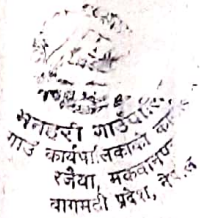 मनहरी गाउँपा
गाउँ कार्यपालिकाको का
रजैया, मकवानपुर
बागमती प्रदेश, नेपाल